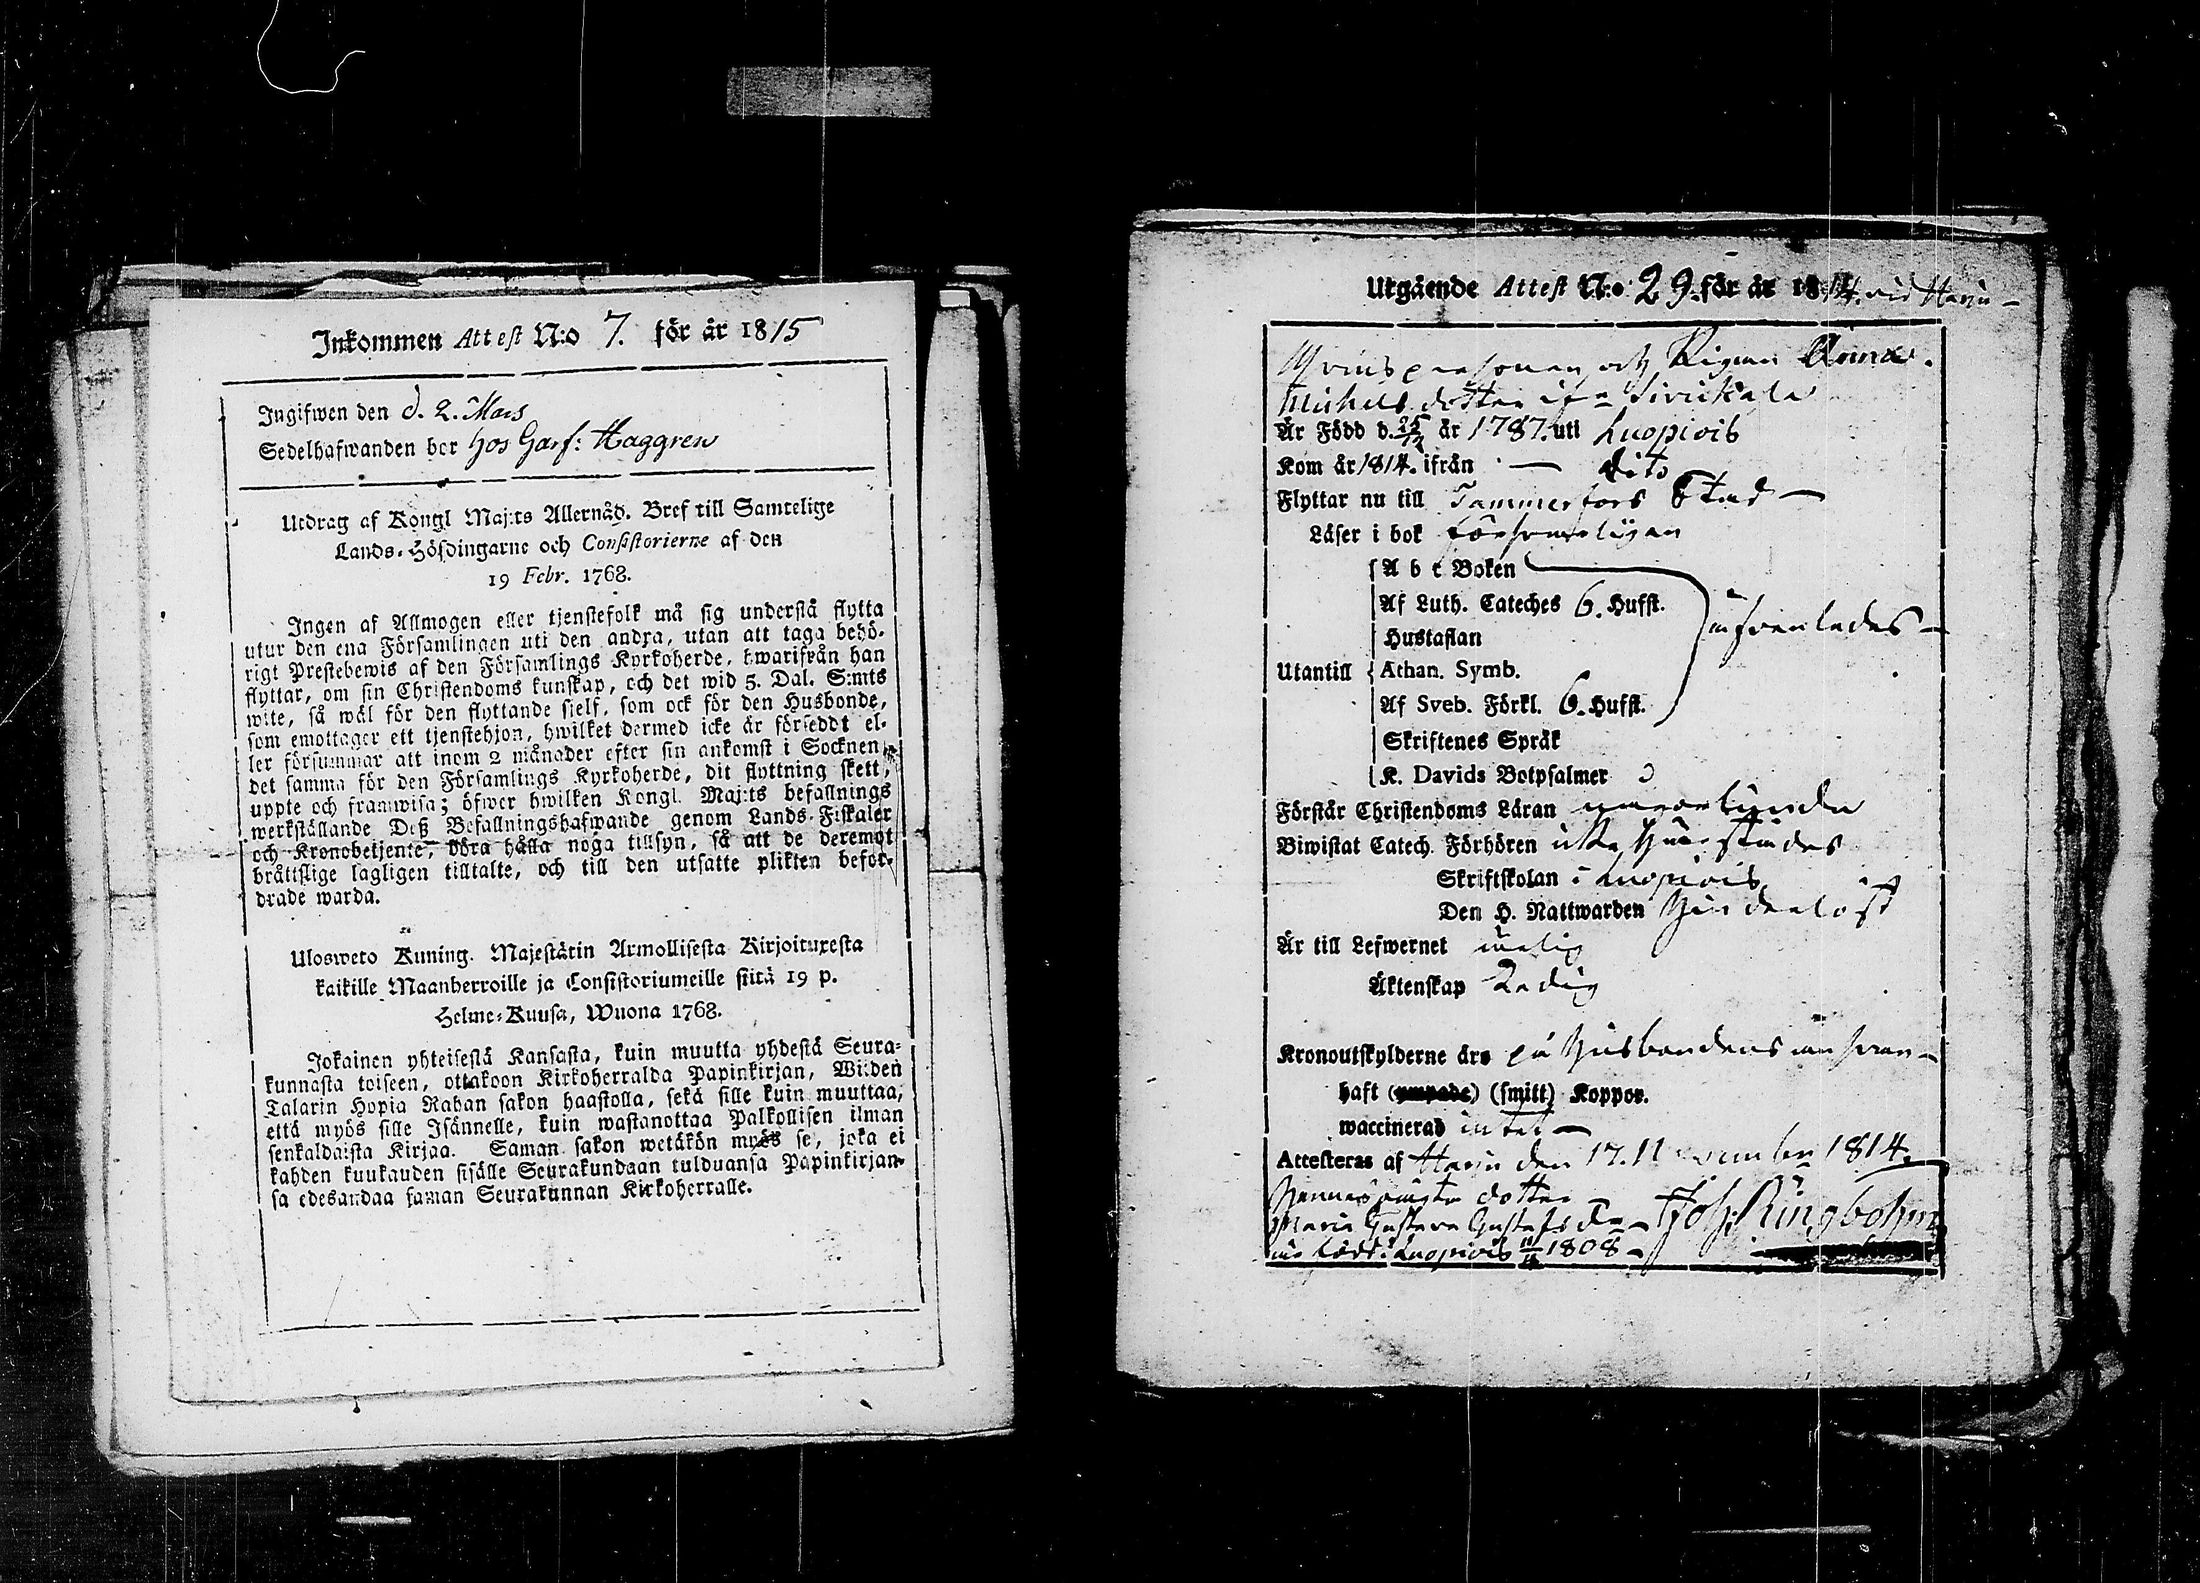 Inkommen Attest N:o 7. för år 1815
Ingifwen den d. 2. Mars
Sedelhafwanden bor hos Garf: Haggren
Utdrag af Kongl Maj:ts Allernåd. Bref till Samtelige
Lands-Höfdingarne och Consistorierne af den
19 Febr. 1768.
Ingen af Allmogen eller tjenstefolk må sig understå flytta
utur den ena Församlingen uti den andra, utan att taga behö-
rigt Prestebewis af den Församlings Kyrkoherde, hwarifrån han
flyttar, om sin Christendoms kunskap, och det wid 5. Dal. S:mts
wite, så wäl för den flyttande sjelf, som ock för den Husbonde,
som emottager ett tjenstehjon, hwilket dermed icke är försedt el-
ler försummar att inom 2 månader efter sin ankomst i Socknen,
det samma för den Församlings Kyrkoherde, dit flyttning skett,
uppte och framwisa; öfwer hwilken Kongl. Maj:ts befallnings
werkställande Deß Befallningshafwande genom Lands-Fiskaler
och Kronobetjente, böra hålla noga tillsyn, så att de deremot
bråttslige lagligen tilltalte, och till den utsatte plikten befor-
drade warda.
Ulosweto Kuning. Majestätin Armollisesta Kirjoituxesta
kaikille Maanherroille ja Consistoriumeille siitä 19 p.
Helme-Kuusa, Wuona 1768.
Jokainen yhteisestä Kansasta, kuin muutta yhdestä Seura-
kunnasta toiseen, ottakoon Kirkoherralda Papinkirjan, Wiiden
Talarin Hopia Rahan sakon haastolla, sekä sille kuin muuttaa,
että myös sille Isännelle, kuin wastanottaa Palkollisen ilman
senkaldaista Kirjaa. Saman sakon wetäkön myös se, joka ei
kahden kuukauden sisälle Seurakundaan tulduansa Papinkirjan-
sa edesandaa saman Seurakunnan Kirkoherralle.
Utgående Attest N:o 29 för år 1814. vid Harju
Pigan Anna
Michels dotter
Är Född d. år 1787. uti Luopiois
Kom år 1814. ifrån — dito
Flyttar nu till Tammerfors Stad —
Läser i bok försvarligen
A b c Boken
Af Luth. Cateches 6. Hufst.
Hustaflan
Utantill Athan. Symb.
Af Sveb. Förkl. 6. Hufst.
Skriftenes Språk
K. Davids Botpsalmer
Förstår Christendoms Läran
Biwistat Catech. Förhören icke härstädes
Skriftskolan i Luopiois
Den H. Nattwarden hinderlöst
Är till Lefwernet
Äktenskap Ledig
Kronoutskylderne äro på Husbondens ansvar —
haft (ympade) (smitt) Koppor.
waccinerad intet —
Attesteras af Harju den 17. November 1814.
Hennes oägta dotter
Maria Gustava Gustafs
född i Luopiois 1808 —
Joh: Ringbohm